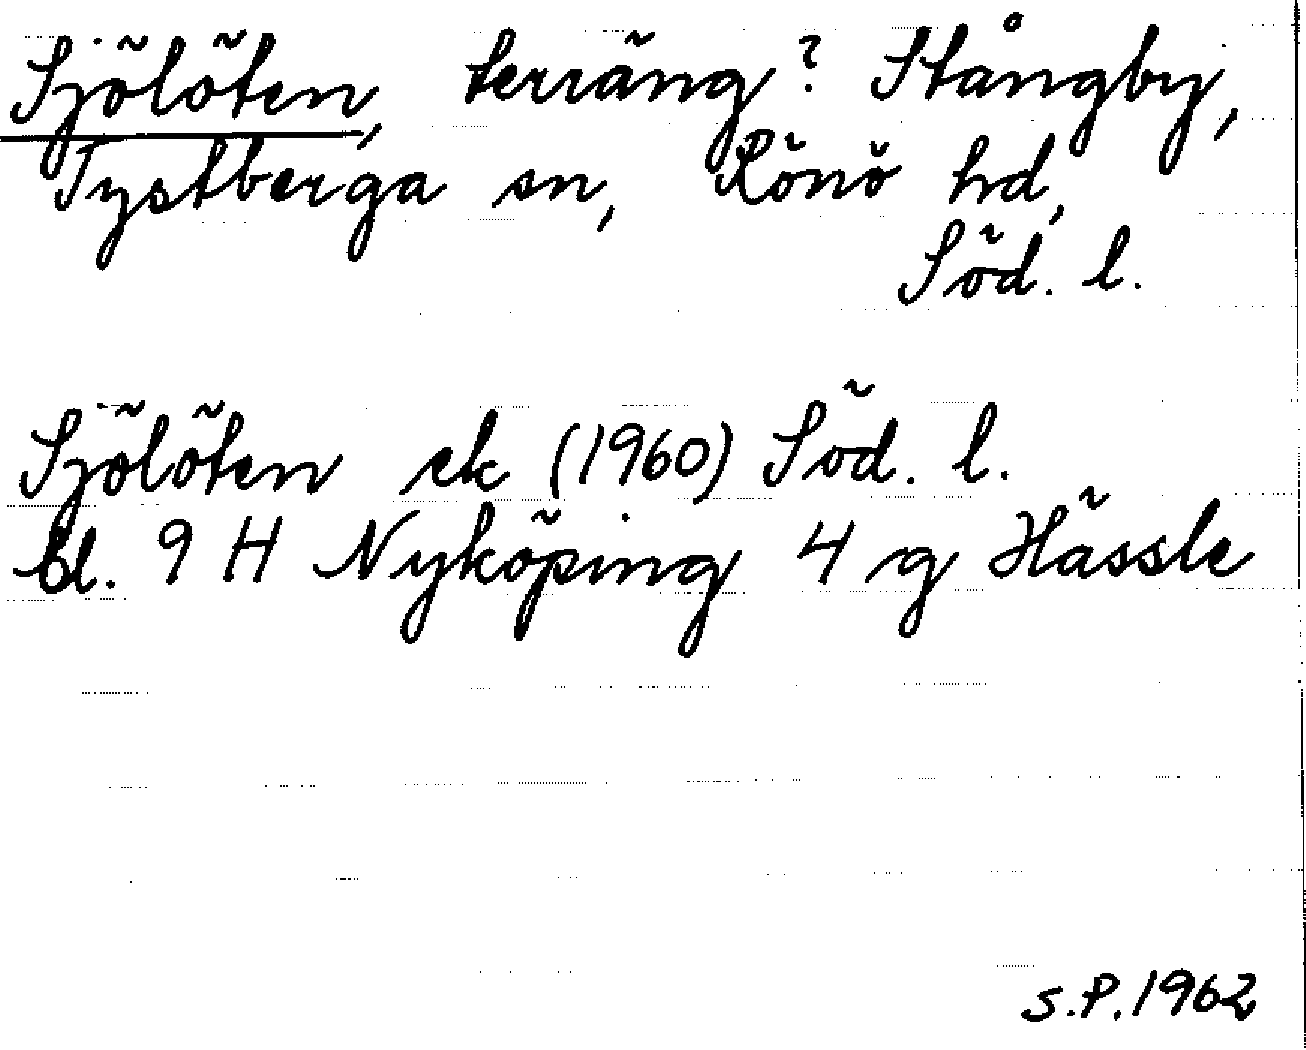 Sjölöten, terräng? Stångby,
Tystberga sn, Rönö hd,
Söd. l.
Sjölöten ek (1960) Söd. l.
bl. 9 H Nyköping 4 g Hässle
S.P. 1962